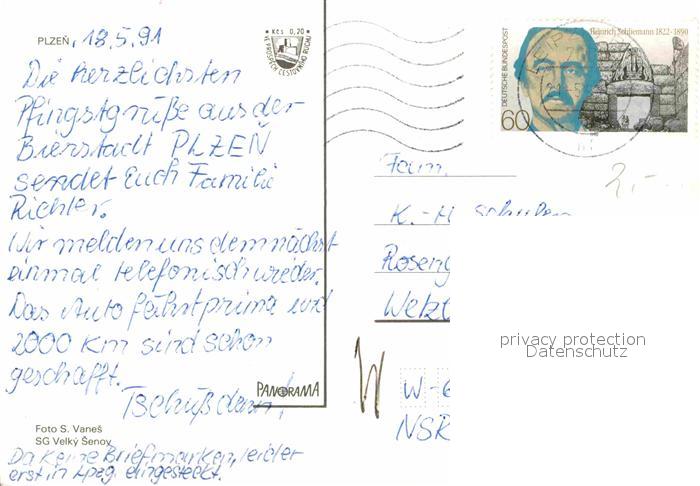 PLZEŇ, 18.5.91
Die herzlichsten
Pfingstgrüße aus der
Bierstadt PLZEŇ
sendet Euch Familie
Richter.
Wir melden uns demnächst
einmal telefonisch wieder.
Das Auto fährt prima und
2000 km sind schon
geschafft.
Tschüß dann!
PANORAMA
Foto S. Vaneš
SG Velký Šenov
Da keine Briefmarken, leider
erst in Lpzg. eingesteckt.
Kčs 0,20
VE PROSPĚCH CESTOVNÍHO RUCHU
Heinrich Schliemann 1822-1890
DEUTSCHE BUNDESPOST
60
2,-
Fam.
K.-H.
Roseng
Wetzl
W-6
NSR
W
privacy protection
Datenschutz